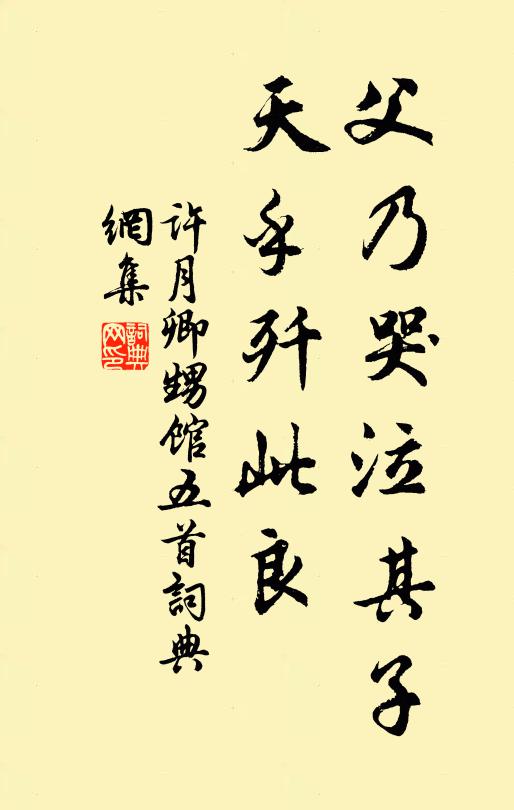 父乃哭泣其子
天乎歼此良
許月卿甥館五首詞典
網集
詞典
网印